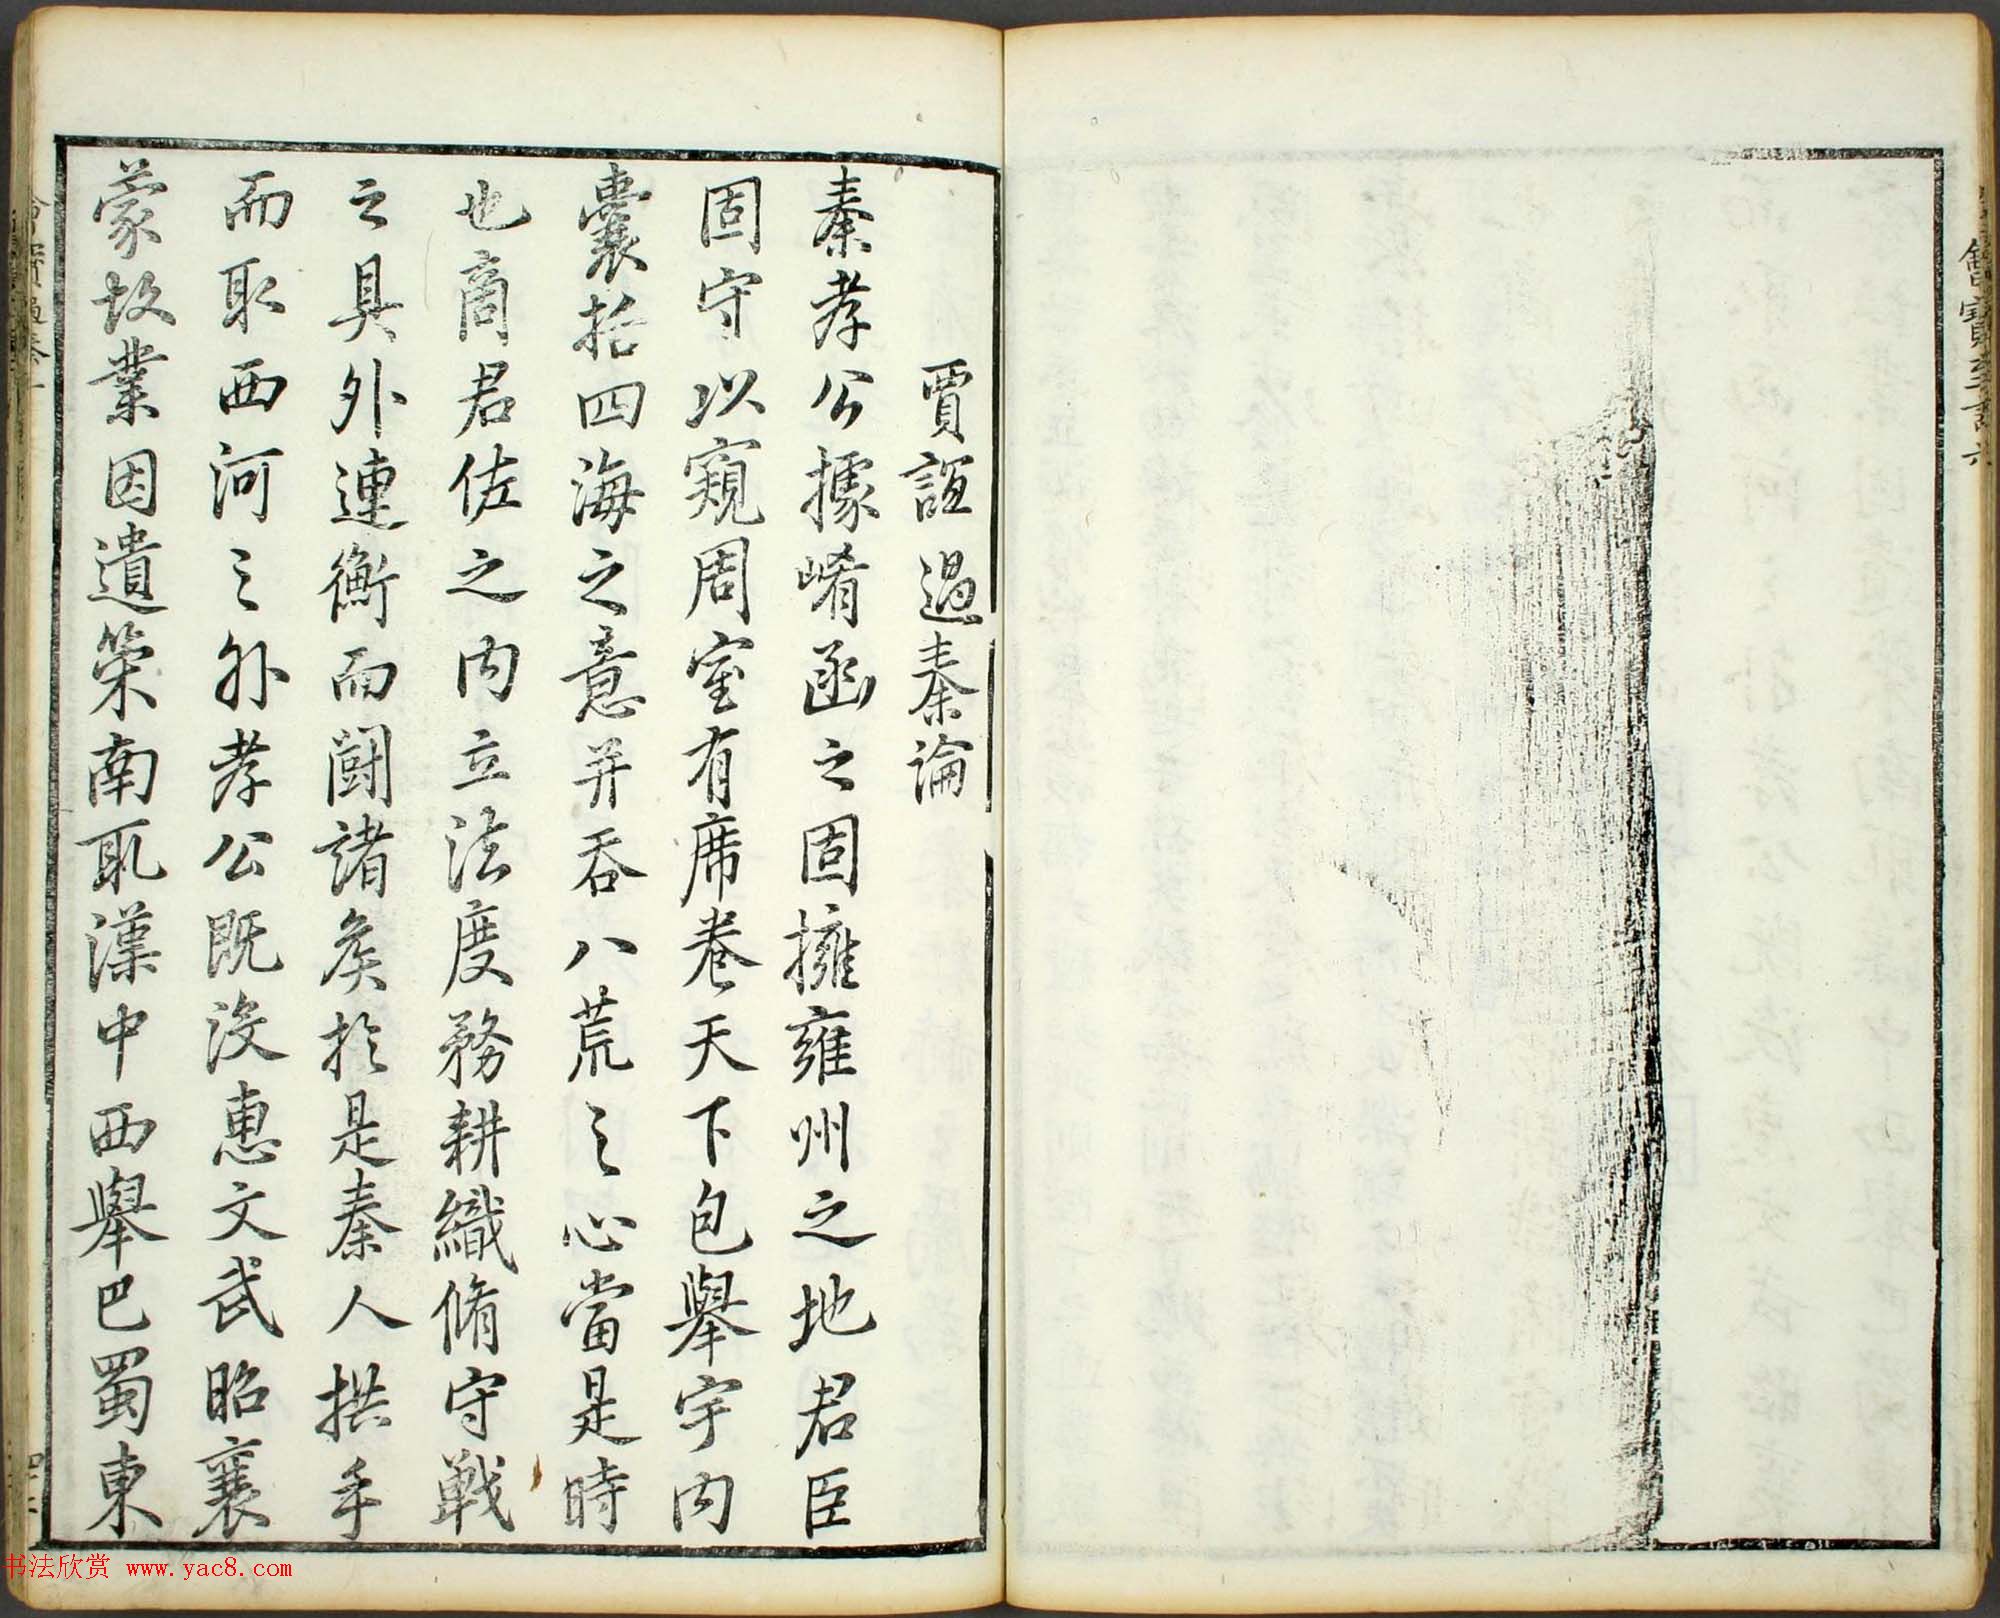 賈誼過秦論
秦孝公據崤函之固擁雍州之地君臣
固守以窺周室有席卷天下包舉宇内
囊括四海之意并吞八荒之心當是時
也商君佐之内立法度務耕織脩守戰
之具外連衡而鬬諸矦於是秦人拱手
而取西河之外孝公既沒惠文武昭襄
蒙故業因遺策南取漢中西舉巴蜀東
书法欣赏 www.yac8.com